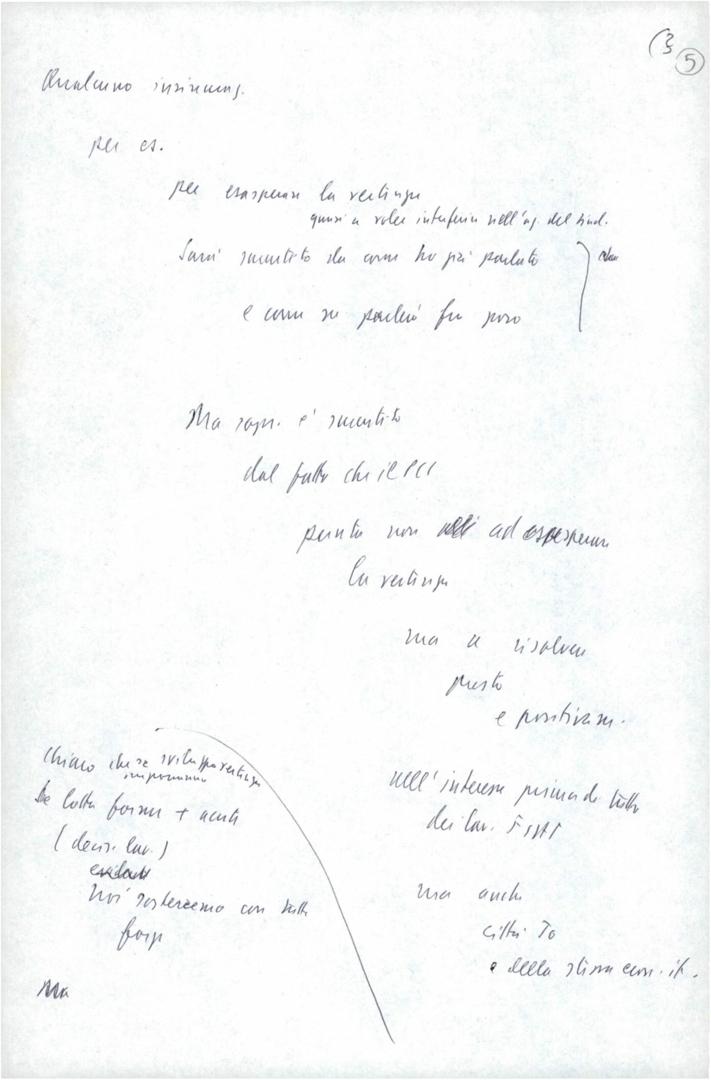 (3
5
Qualcuno insinuerà
per es.
per esasperare la vertenza
quasi a voler interferire nell'az. del sind.
Sarà smentito da come ho già parlato
e come se parlerà fra poco
Ma sopr. è smentito
dal fatto che il PCI
punta non ad esasperare
la vertenza
ma a risolvere
presto
e positivam.
nell'interesse prima di tutto
dei lav. FIAT
ma anche
città To
e della stessa econ. it.
Chiaro che se sviluppo vertenza
imporranno
lotta forme + acute
(decis. lav.)
noi sosterremo con tutta
forza
Ma